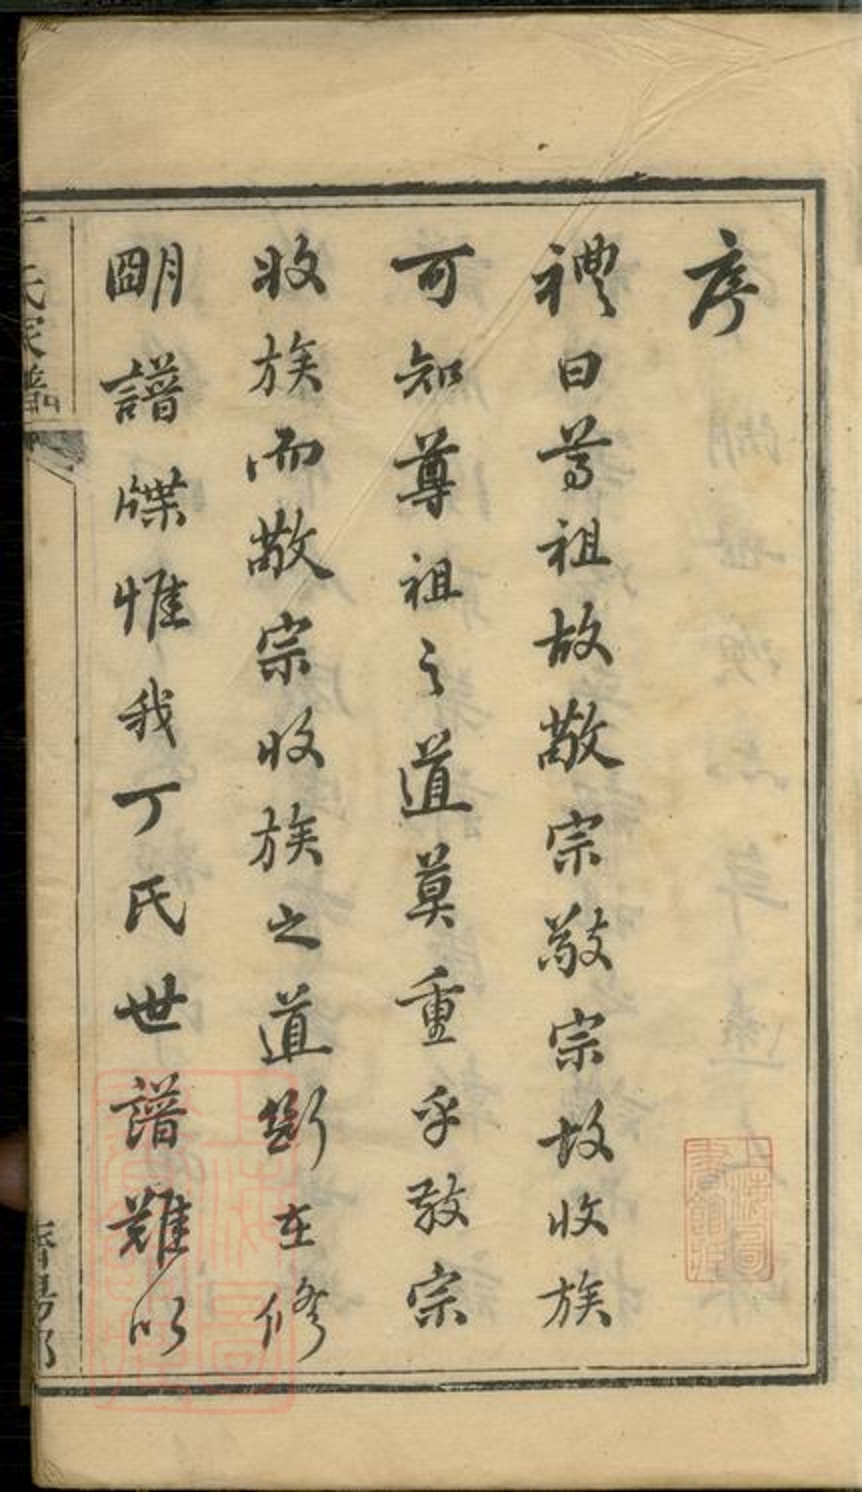 序
禮曰尊祖故敬宗敬宗故收族
可知尊祖之道莫重乎敬宗
收族而敬宗收族之道斷在修
朙譜牒惟我丁氏世譜難以
丁氏家譜
上海圖書館藏